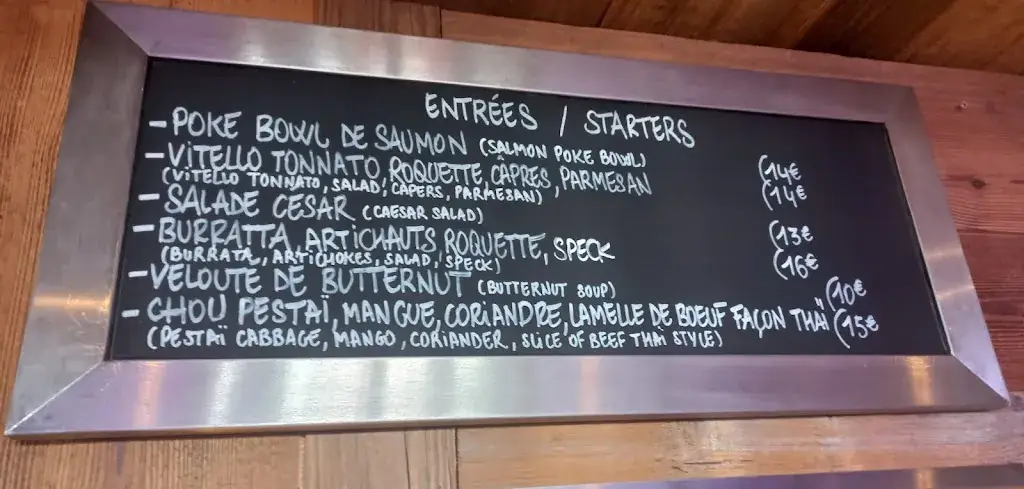 ENTRÉES / STARTERS
- POKE BOWL DE SAUMON (SALMON POKE BOWL) (14€
- VITELLO TONNATO, ROQUETTE, CÂPRES, PARMESAN (14€
(VITELLO TONNATO, SALAD, CAPERS, PARMESAN)
- SALADE CESAR (CAESAR SALAD) (13€
- BURRATTA, ARTICHAUTS ROQUETTE, SPECK (16€
(BURRATA, ARTICHOKES, SALAD, SPECK)
- VELOUTE DE BUTTERNUT (BUTTERNUT SOUP) (10€
- CHOU PESTAÏ, MANGUE, CORIANDRE, LAMELLE DE BOEUF FAÇON THAÏ (15€
(PESTAÏ CABBAGE, MANGO, CORIANDER, SLICE OF BEEF THAI STYLE)